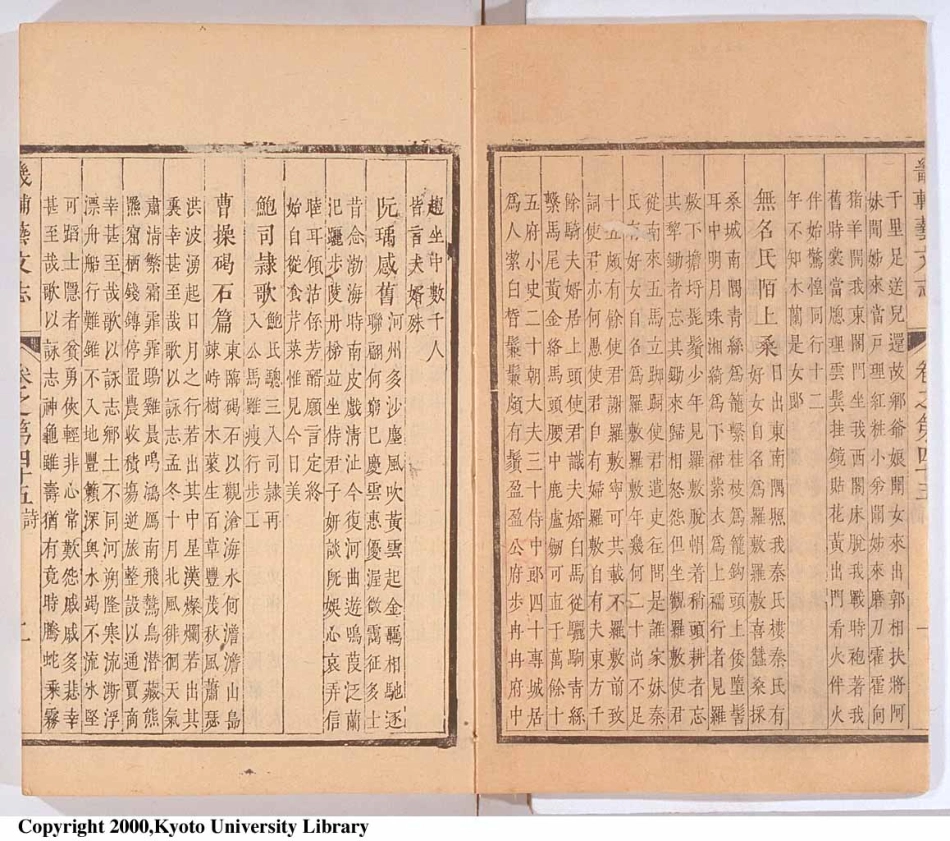 畿輔藝文志
卷之第四十五
一
千里足送兒還故鄉爺娘聞女來出郭相扶將阿
妹聞姊來當戸理紅粧小弟聞姊來磨刀霍霍向
猪羊開我東閣門坐我西閣床脫我戰時袍著我
舊時裳當牎理雲鬂挂鏡貼花黃出門看火伴火
伴始驚惶同行十二
年不知木蘭是女郎
無名氏陌上桑 日出東南隅照我秦氏樓秦氏有
好女自名為羅敷羅敷喜蠶桑採
桑城南隅青絲為籠繫桂枝為籠鈎頭上倭墮髻
耳中明月珠湘綺為下裙紫衣為上襦行者見羅
敷下擔捋髭鬚少年見羅敷脫帽着稍頭耕者忘
其犂鋤者忘其鋤來歸相怨怒但坐觀羅敷使君
從南來五馬立踟躕使君遣吏徃問是誰家姝秦
氏有好女自名為羅敷羅敷年幾何二十尚不足
十五頗有餘使君謝羅敷寧可共載不羅敷前致
詞使君亦何愚使君自有婦羅敷自有夫東方千
餘騎夫婿居上頭使君識夫婿白馬從驪駒青絲
繫馬尾黃金絡馬頭腰中鹿盧劒可直千萬餘十
五府小史二十朝大夫三十侍中郎四十專城居
為人潔白皙鬑鬑頗有鬚盈盈公府步冉冉府中
趨坐中數千人
皆言夫婿殊
阮瑀感舊 河州多沙塵風吹黃雲起金羈相馳逐
聯翩何窮已慶雲惠優渥微薄征多士
昔念渤海時南皮戲清沚今復河曲遊鳴葭泛蘭
汜躧步陵丹梯並坐侍君子妍談旣娛心哀弄信
睦耳傾沽係芳醑願言定終
始自從食芹萊惟見今日美
鮑司隸歌 鮑氏驄三入司隸再
入公馬雖瘦行步工
曹操碣石篇 東臨碣石以觀滄海水何澹澹山島
竦峙樹木叢生百草豐茂秋風蕭瑟
洪波湧起日月之行若出其中星漢燦爛若出其
裏幸甚至哉歌以詠志孟冬十月北風徘徊天氣
肅清繁霜霏霏鵾雞晨鳴鴻鴈南飛鷙鳥潛藏熊
羆窟栖錢鎛停置農收積塲逆旅整設以通賈商
幸甚至哉歌以詠志鄉土不同河朔隆寒流澌浮
漂舟船行難錐不入地豐籟深奥水竭不流氷堅
可蹈士隱者貧勇俠輕非心常歎怨戚戚多悲幸
甚至哉歌以詠志神龜雖壽猶有竟時騰蛇乘霧
畿輔藝文志
卷之第四十五 詩
二
Copyright 2000,Kyoto University Library